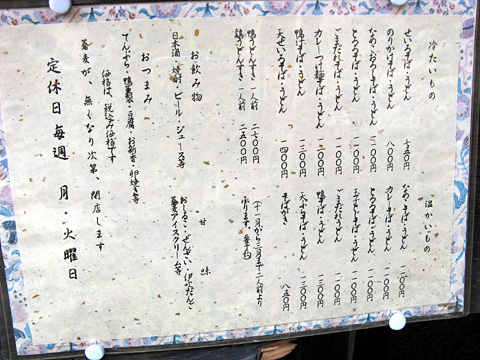 冷たいもの
せいろそば・うどん 七五〇円
のりかけそば・うどん 八〇〇円
なめこおろしそば・うどん 一二〇〇円
とろろそば・うどん 一一〇〇円
ごまだれそば・うどん 一一〇〇円
カレーつけ麺そば・うどん 一二〇〇円
鴨せいろそば・うどん 一三〇〇円
天せいろそば・うどん 一四〇〇円
温かいもの
なめこそば・うどん 一一〇〇円
カレーそば・うどん 一一〇〇円
とろろそば・うどん 一一〇〇円
玉子とじそば・うどん 一〇〇〇円
ごまだれうどん 一一〇〇円
鴨そば・うどん 一三〇〇円
天ぷらそば・うどん 一三〇〇円
そばがき 八五〇円
鴨うどんすき 一人前 二七〇〇円
鶏うどんすき 一人前 二五〇〇円
(十一月から三月まで二人前より
承ります。要予約)
お飲み物
日本酒・焼酎・ビール・ジュース等
甘味
おしるこ・ぜんざい・伊心だんご
蕎麦アイスクリーム等
おつまみ
てんぷら・鴨・豆腐・お新香・卵焼き等
価格は、税込み価格です
蕎麦が、無くなり次第、閉店します
定休日毎週 月・火曜日